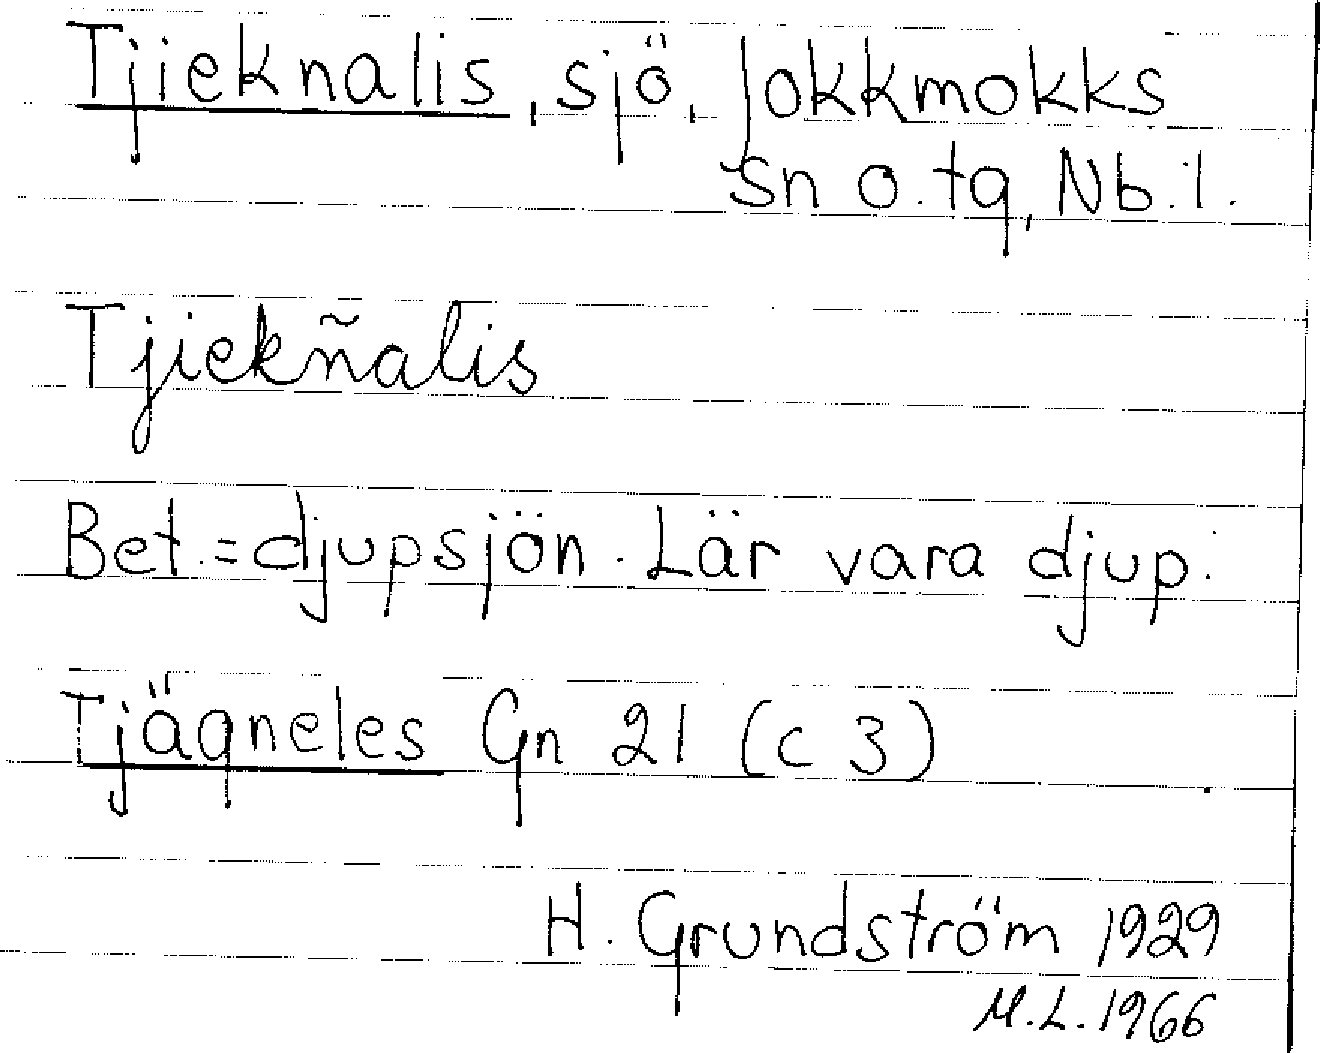 Tjieknalis, sjö, Jokkmokks
sn o. tg, Nb. l.
Tjiekñalis
Bet. = djupsjön. Lär vara djup.
Tjägneles Gn 21 (c 3)
H. Grundström 1929
M.L. 1966